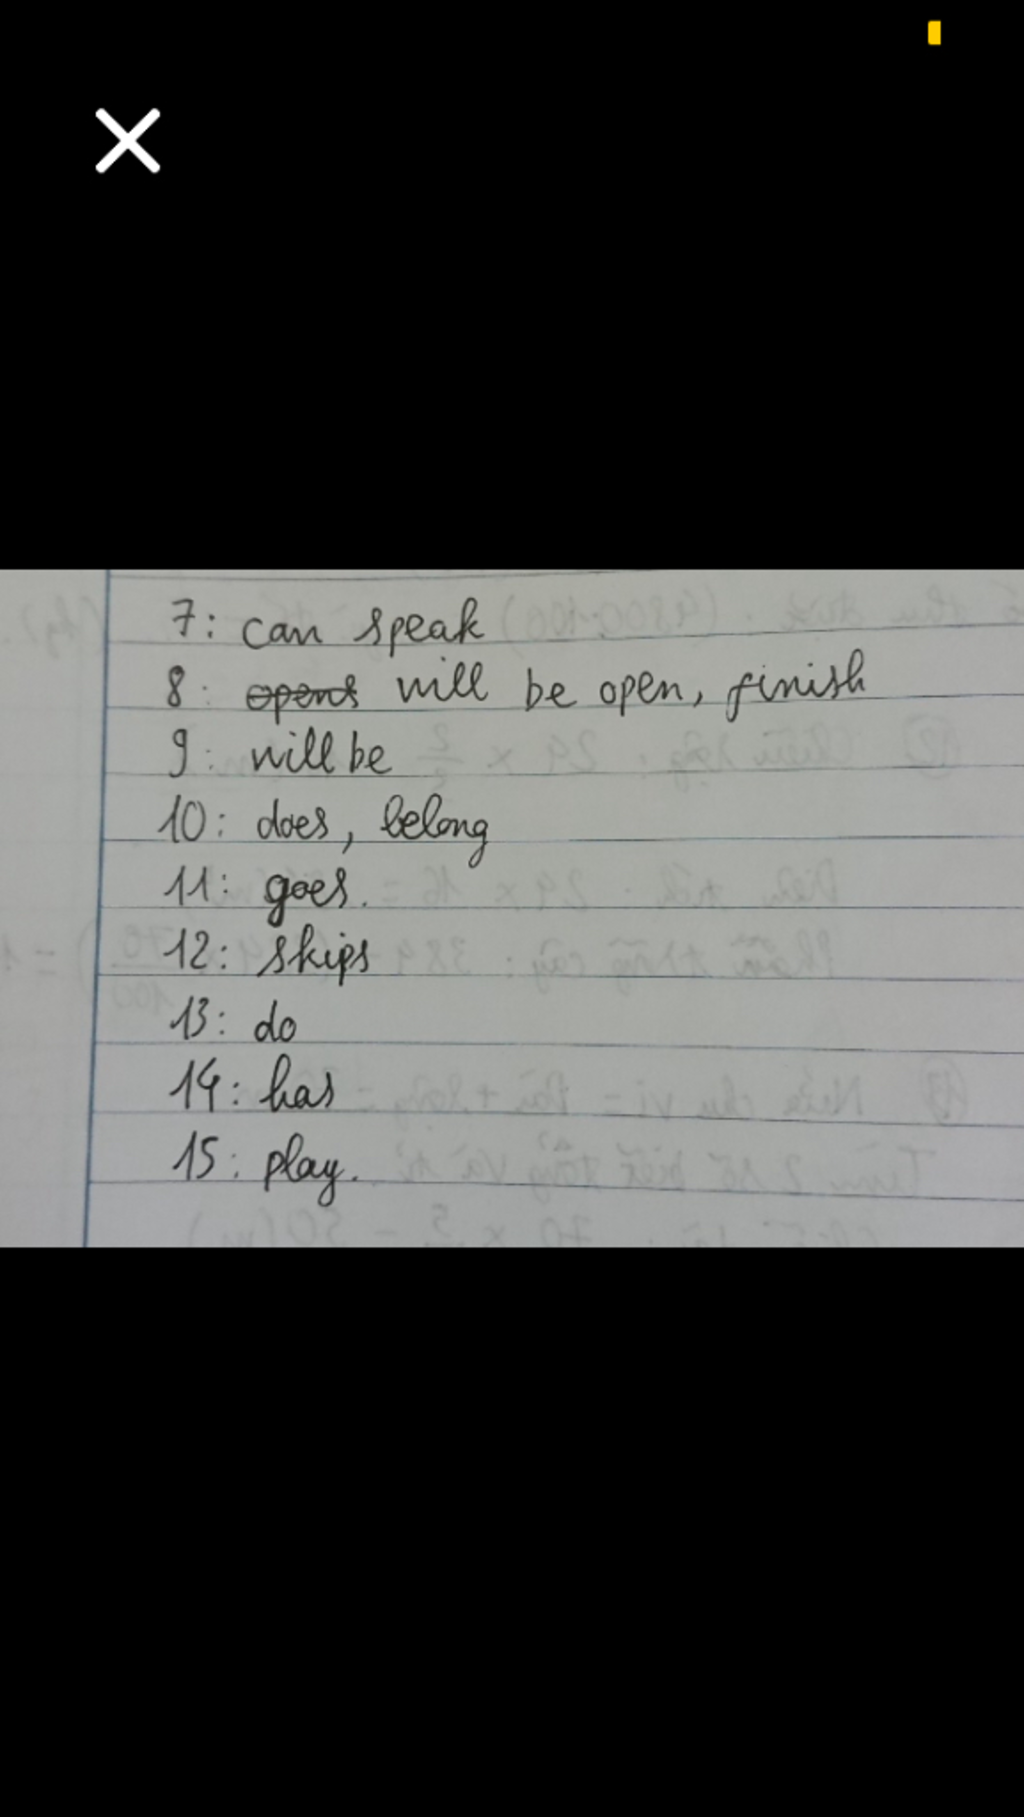 7: can speak
8: opens will be open, finish
9: will be
10: does, belong
11: goes.
12: skips
13: do
14: has
15: play.